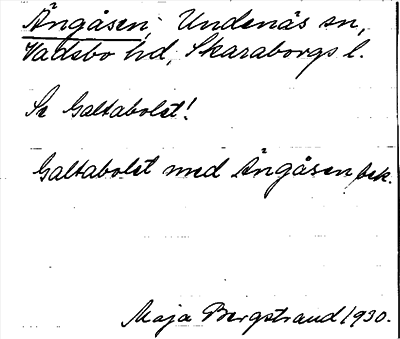 Ängåsen, Undenäs sn,
Vadsbo hd, Skaraborgs l.
Se Galtabolet!
Galtabolet med Ängåsen bek.
Maja Bergstrand 1930.